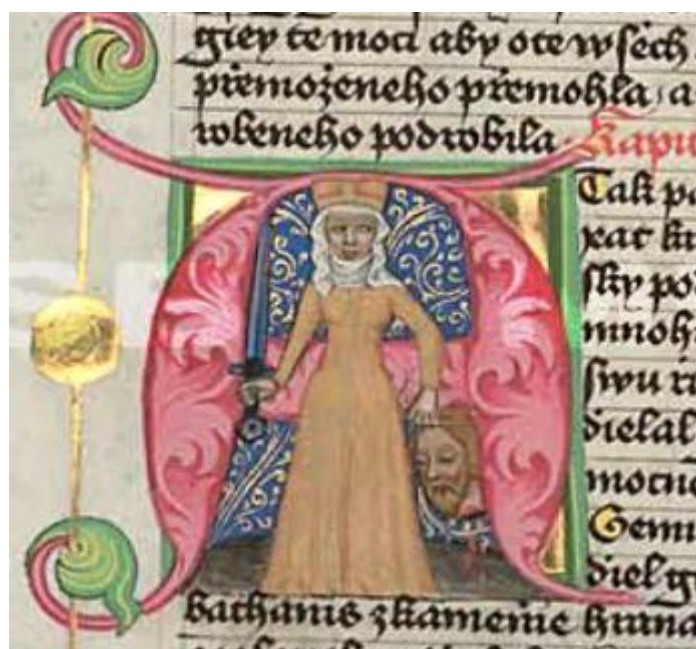 giey te moci aby ote wſech
přemoženeho přemohla, a
robeneho podrobila. Kapi
A Tak p
xat k
ſky po
mnoh
ſwu
dielal
mocne
Gemu
diel g
bathanis zkamenie hrana